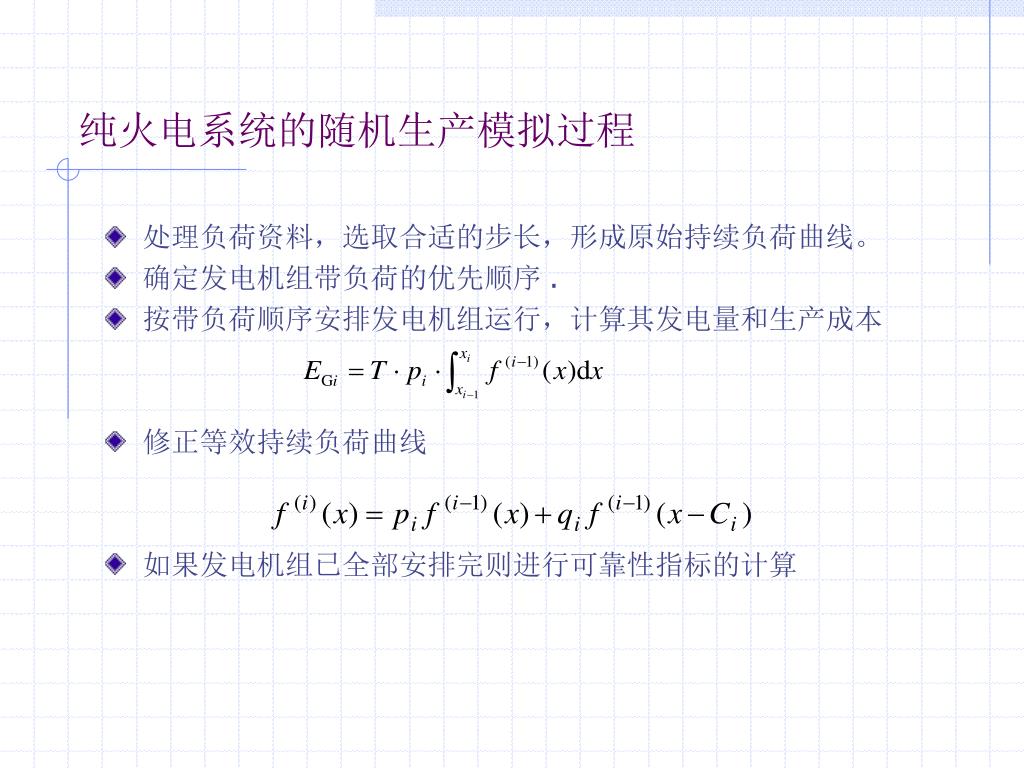 纯火电系统的随机生产模拟过程
处理负荷资料，选取合适的步长，形成原始持续负荷曲线。
确定发电机组带负荷的优先顺序 .
按带负荷顺序安排发电机组运行，计算其发电量和生产成本
E_{Gi} = T · p_i · ∫_{x_{i-1}}^{x_i} f^{(i-1)}(x)dx
修正等效持续负荷曲线
f^{(i)}(x) = p_i f^{(i-1)}(x) + q_i f^{(i-1)}(x − C_i)
如果发电机组已全部安排完则进行可靠性指标的计算